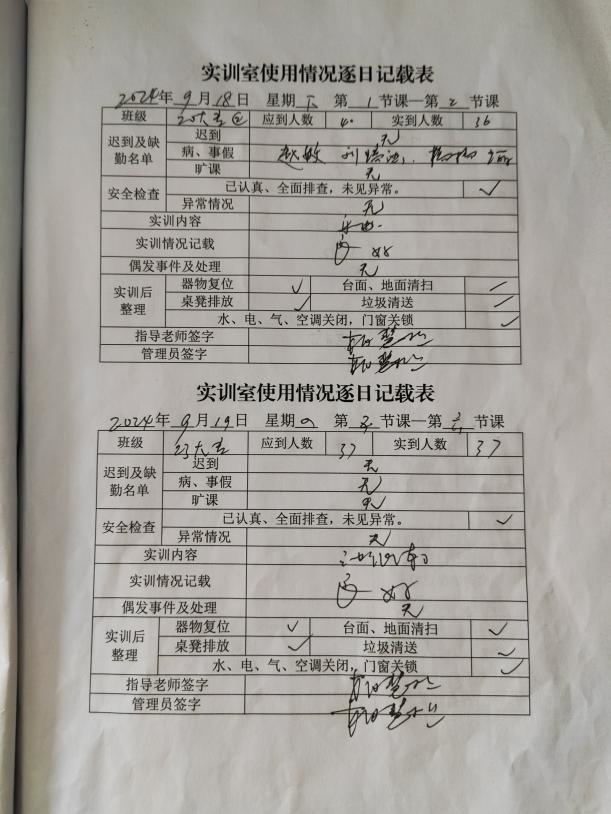 实训室使用情况逐日记载表
2024年 9月18日 星期 第1节课—第2节课
班级 应到人数 40 实到人数 36
迟到及缺勤名单 迟到 无
病、事假 赵敏
旷课 无
安全检查 已认真、全面排查，未见异常。 ✓
异常情况 无
实训内容
实训情况记载 好
偶发事件及处理 无
实训后整理 器物复位 ✓ 台面、地面清扫
桌凳排放 ✓ 垃圾清送
水、电、气、空调关闭，门窗关锁 ✓
指导老师签字
管理员签字
实训室使用情况逐日记载表
2024年 9月19日 星期四 第5节课—第6节课
班级 23大专 应到人数 37 实到人数 37
迟到及缺勤名单 迟到 无
病、事假 无
旷课 无
安全检查 已认真、全面排查，未见异常。 ✓
异常情况 无
实训内容
实训情况记载 好
偶发事件及处理 无
实训后整理 器物复位 ✓ 台面、地面清扫 ✓
桌凳排放 ✓ 垃圾清送 ✓
水、电、气、空调关闭，门窗关锁 ✓
指导老师签字
管理员签字